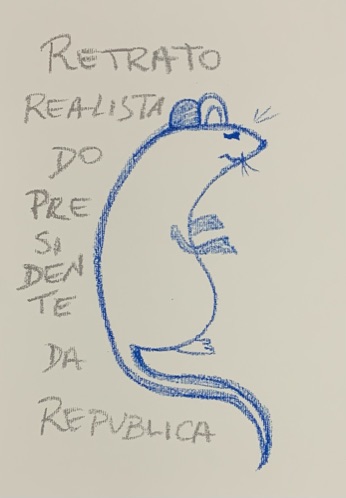 RETRATO
REALISTA
DO
PRE
SI
DEN
TE
DA
REPUBLICA